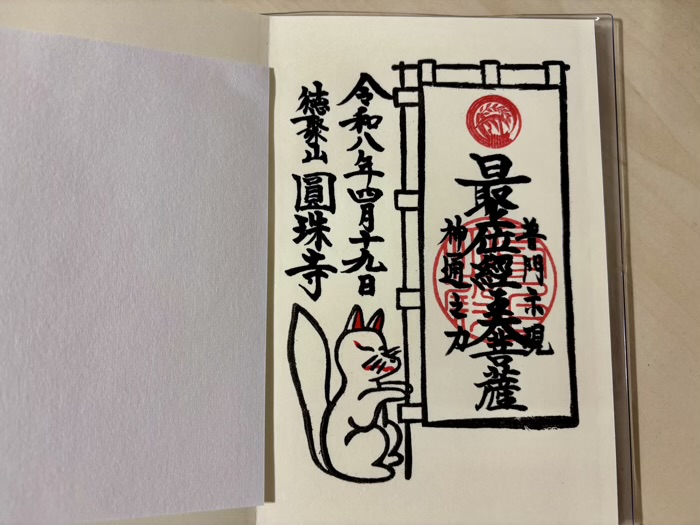 普門示現
最上位經王大菩薩
神通之力
令和八年四月十九日
徳聚山 圓珠寺